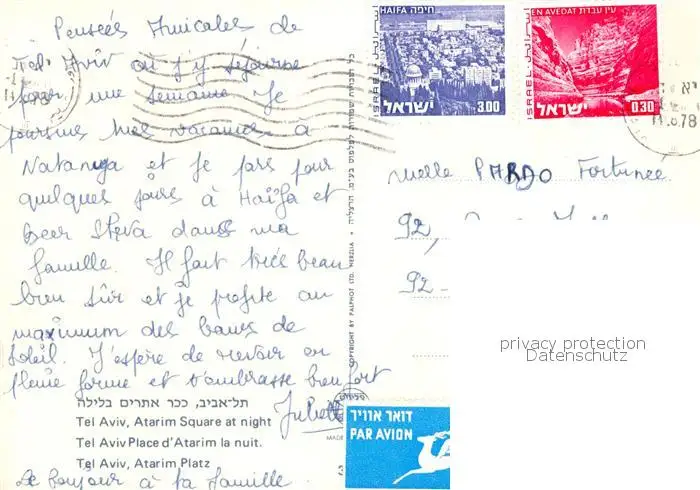 Pensées Amicales de
Tel Aviv où j'y séjourne
pour une semaine Je
poursuis mes vacances à
Natanya et je pars pour
quelques jours à Haïfa et
Beer Sheva dans ma
famille. Il fait très beau
bien sûr et je profite au
maximum des bains de
soleil. J'espère de revenir en
pleine forme et t'embrasse bien fort
תל-אביב, ככר אתרים בלילה
Tel Aviv, Atarim Square at night
Tel Aviv Place d'Atarim la nuit.
Tel Aviv, Atarim Platz
Le bonjour à ta famille
כל הזכויות שמורות לפלפוט בע״מ, הרצליה • COPYRIGHT BY PALPHOT LTD. HERZLIA
MADE
HAIFA חיפה
ISRAEL
ישראל
3.00
EN AVEDAT עין עבדת
ISRAEL
ישראל
0.30
.8.78
Melle PARDO Fortunée
92,
92-
privacy protection
Datenschutz
דואר אוויר
PAR AVION